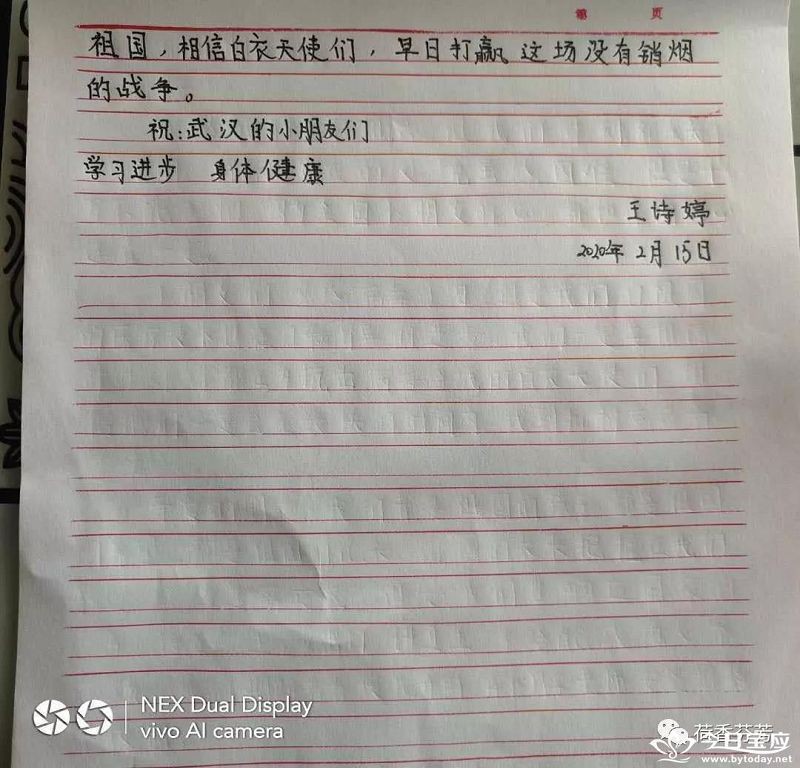 第 页
祖国，相信白衣天使们，早日打赢这场没有销烟
的战争。
祝:武汉的小朋友们
学习进步 身体健康
王诗婷
2020年2月15日
NEX Dual Display
vivo AI camera
荷香芬芳
今日宝应
www.bytoday.net